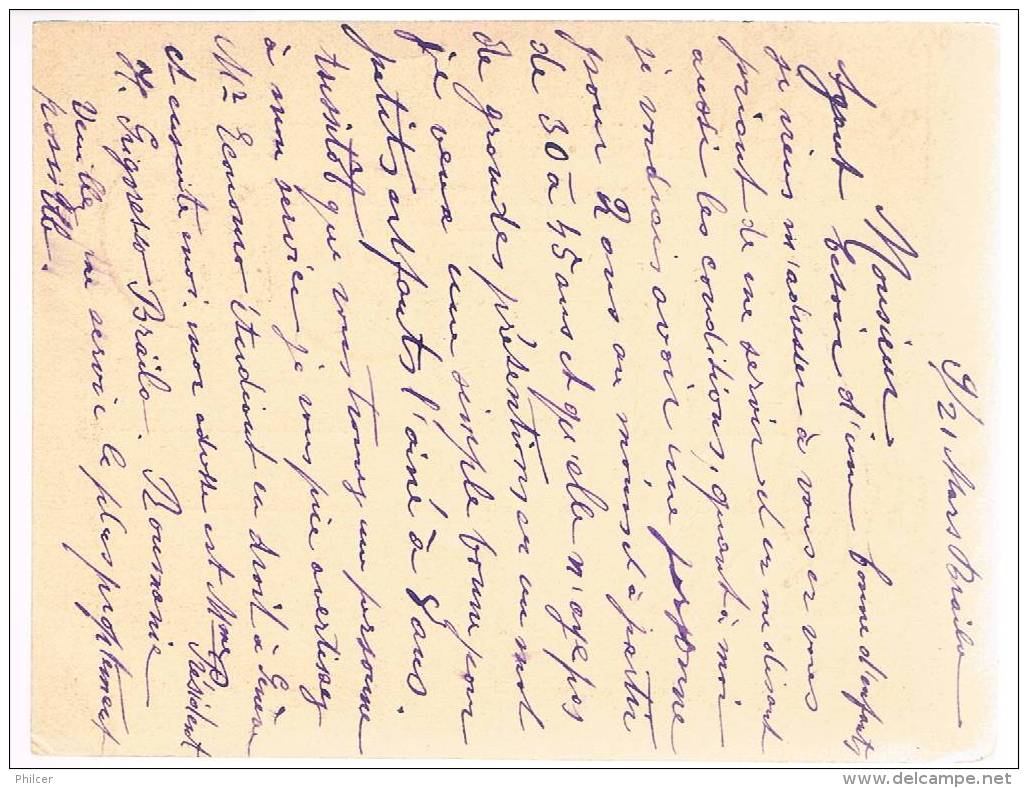 9/21 Mars Braila
Monsieur
Ayant besoin d'une bonne d'enfants
je viens m'adresser à vous en vous
priant de me servir et en me disant
aussi les conditions, quant à moi
je voudrais avoir une personne
pour 2 ans au moins et à partir
de 30 à 45 ans et qu'elle n'aye pas
de grandes présentions en un mot
je veux une simple bonne pour
petits enfants l'ainé à 8 ans.
tussitôt que vous trouvez une personne
à mon service je vous prie avertissez
Mr Economo étudiant en droit à Genève
et ensuite moi, mon adresse est Mme
Président
H. Grigoresco Braila. Roumanie
Veuillez me servir le plus promptement
possible.
Philcer
www.delcampe.net